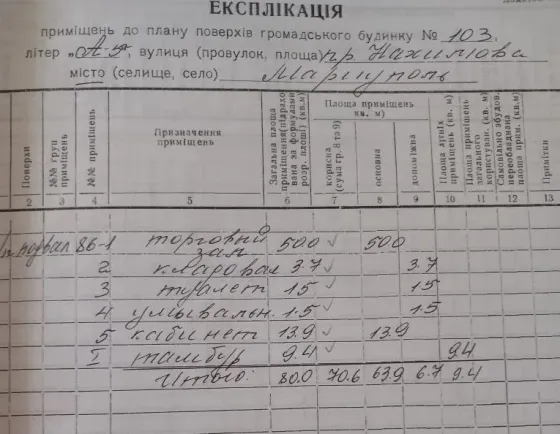 ЕКСПЛІКАЦІЯ
приміщень до плану поверхів громадського будинку № 103,
літер „А-9", вулиця (провулок, площа) пр. Нахимова
місто (селище, село) Мариуполь
Поверхи №№ груп приміщень №№ приміщень Призначення приміщень Загальна площа приміщення(підрахована за формулами розр. площі) (кв.м) Площа приміщень кв. м) корисна (сума гр. 8 та 9) основна допоміжна Площа літніх приміщень (кв. м) Площа приміщень загального користуван. (кв. м) Самовільно збудов. переобладнана площа прим. (кв. м) Примітки
2 3 4 5 6 7 8 9 10 11 12 13
подвал 86-1 торговый зал 50.0 ✓ 50.0
2 кладовая 3.7 ✓ 3.7
3 туалет 1.5 ✓ 1.5
4 умывальн. 1.5 ✓ 1.5
5 кабинет 13.9 ✓ 13.9
I тамбур 9.4 ✓ 9.4
Итого: 80.0 70.6 63.9 6.7 9.4